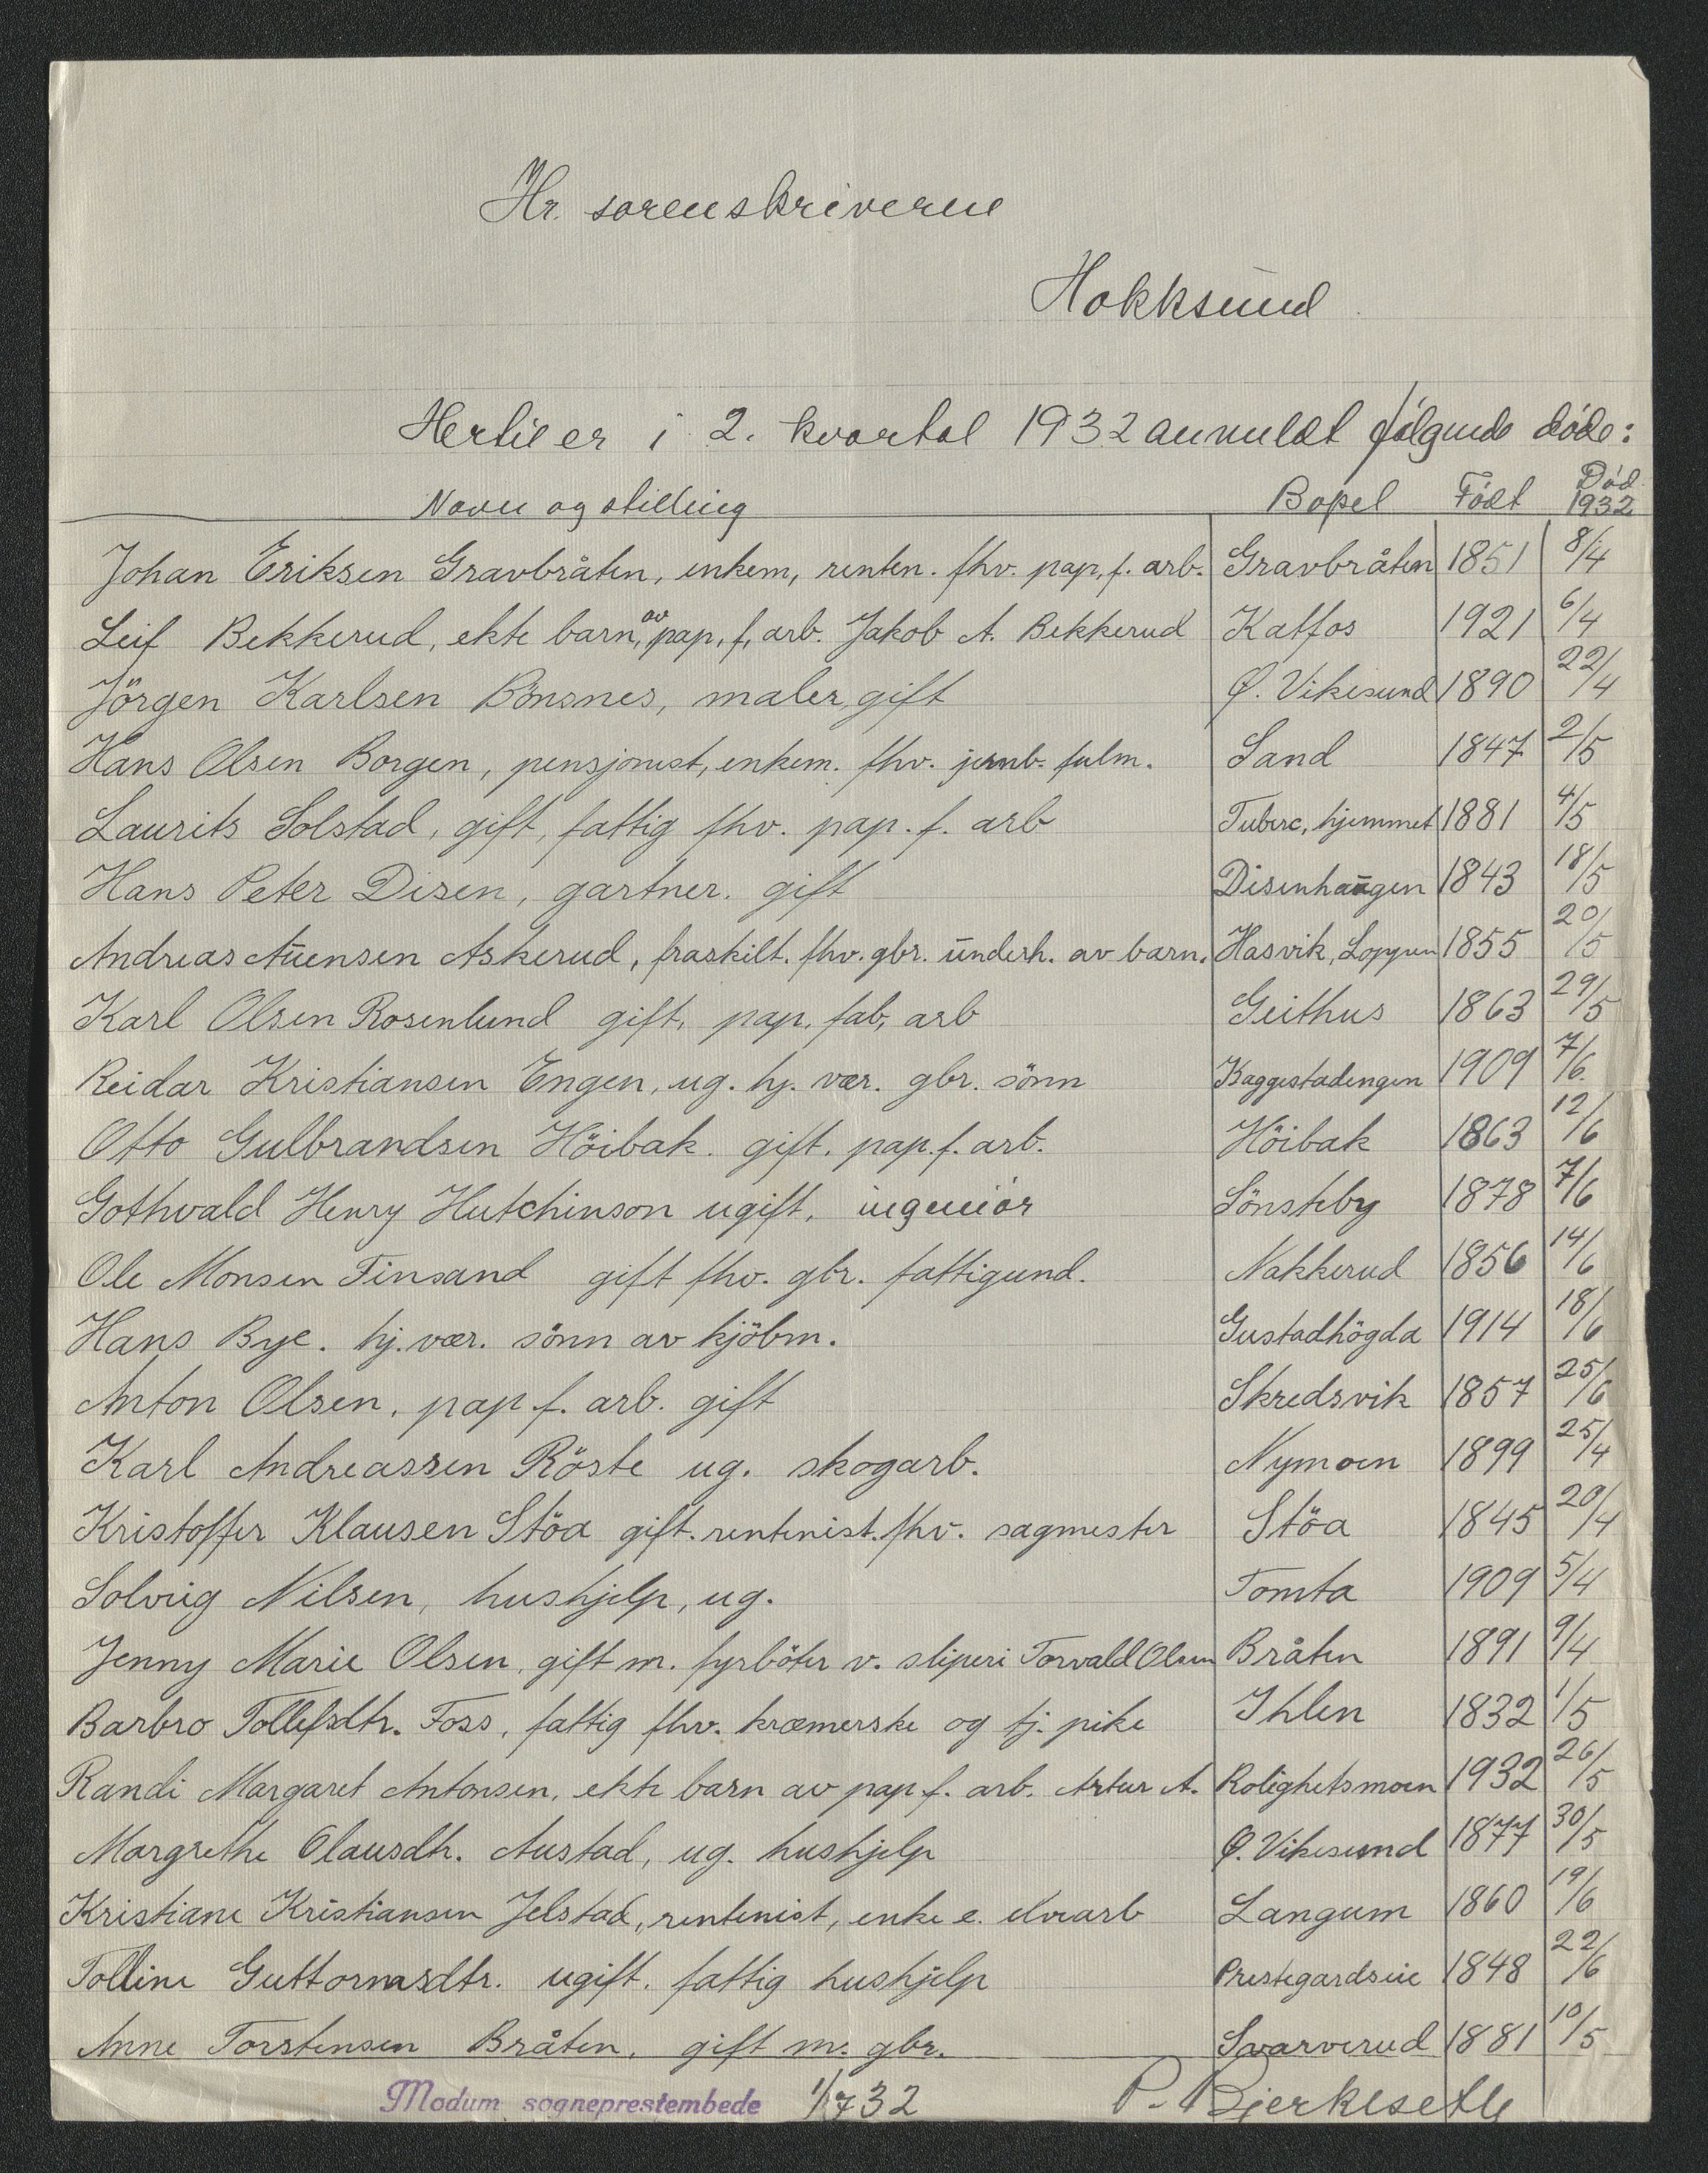 Hr. sorenskriveren
Hokksund
Hertil er i 2. kvartal 1932 anmeldt følgende døde:
Navn og stilling Bopel Født Død 1932
Johan Eriksen Gravbråten, enkem, renten. fhv. pap. f. arb. Gravbråten 1851 8/4
Leif Bekkerud, ekte barn, av pap. f. arb. Jakob A. Bekkerud Katfos 1921 6/4
Jörgen Karlsen Bönsnes, maler, gift Ø. Vikesund 1890 22/4
Hans Olsen Borgen, pensjonist, enkem. fhv. jernb. fulm. Sand 1847 2/5
Laurits Solstad, gift, fattig fhv. pap. f. arb Tuberc, hjemmet 1881 4/5
Hans Peter Disen, gartner. gift Disenhaugen 1843 18/5
Andreas Auensen Askerud, fraskilt. fhv. gbr. underh. av barn. Hasvik, Loppen 1855 20/5
Karl Olsen Rosenlund gift, pap. fab, arb Geithus 1863 29/5
Reidar Kristiansen Engen, ug. hj. vær. gbr. sönn Kaggestadengen 1909 7/6
Otto Gulbrandsen Höibak. gift. pap. f. arb. Höibak 1863 12/6
Gothvald Henry Hutchinson ugift, ingeniör Sönsteby 1878 7/6
Ole Monsen Finsand gift fhv. gbr. fattigund. Nakkerud 1856 14/6
Hans Bye. hj. vær. sönn av kjöbm. Gustadhögda 1914 18/6
Anton Olsen, pap f. arb. gift Skredsvik 1857 25/6
Karl Andreassen Röste ug. skogarb. Nymoen 1899 25/4
Kristoffer Klausen Stöa gift. rentenist. fhv. sagmester Stöa 1845 20/4
Solveig Nilsen, hushjelp, ug. Tomta 1909 5/4
Jenny Marie Olsen, gift m. fyrböter v. sliperi Torvald Olsen Bråten 1891 9/4
Barbro Tollefsdtr. Foss, fattig fhv. kræmerske og tj. pike Ihlen 1832 1/5
Randi Margaret Antonsen, ekte barn av pap f. arb. Artur A. Rolighetsmoen 1932 26/5
Margrethe Olausdtr. Austad, ug. hushjelp Ø. Vikesund 1877 30/5
Kristiane Kristiansen Jelstad, rentenist, enke e. elvearb Langum 1860 19/6
Tolline Guttormsdtr. ugift. fattig hushjelp Prestegardseie 1848 22/6
Anne Torstensen Bråten. gift m. gbr. Svarverud 1881 10/5
Modum sogneprestembede 1/7 32 P. Bjerkeseth